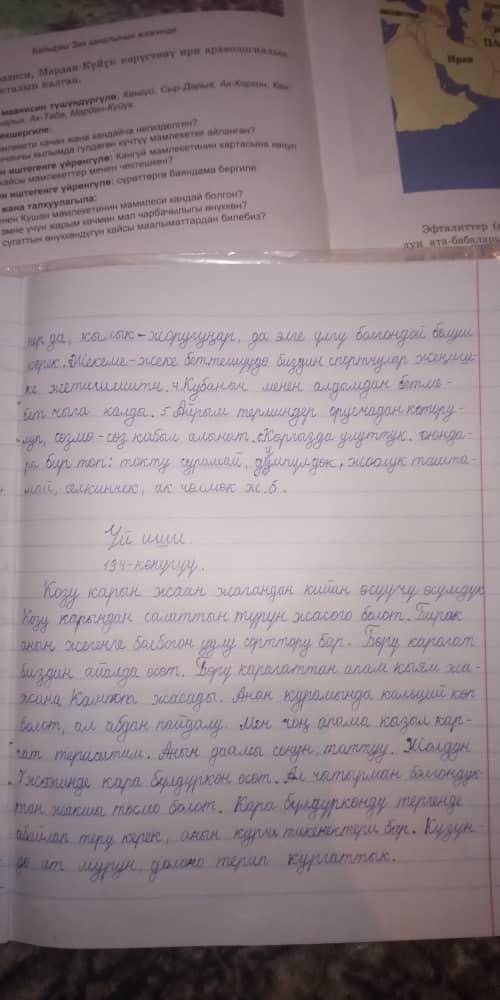 Байыркы Эки каналынын
разиси, Мардан-Күйүк көрүстөнү ири археологиялык
сакталып калган.
маанисин түшүндүргүлө: Кангүй, Сыр-Дарыя,
Ак-Төбө, Мардан-Күйүк.
текшергиле:
мамлекети качан жана кандайча негизделген?
кылымда гүлдөгөн күчтүү мамлекетке айланган?
иштегенге үйрөнгүлө: Кангүй мамлекетинин картасына көңүл
кайсы мамлекеттер менен чектешкен?
иштегенге үйрөнгүлө: сүрөттөргө баяндама бергиле.
жана талкуулагыла:
менен Кушан мамлекетинин мамилеси кандай болгон?
эмне үчүн жарым көчмөн мал чарбачылыгы өнүккөн?
сугаттын өнүккөндүгүн кайсы маалыматтардан билебиз?
Иран
Эфталиттер
дун ата-бабалары
да, кылык-жоругуңар, да элге үлгү болгондой болуш
керек. Жекеме-жеке беттешүүдө биздин спортчулар жеңиш-
ке жетишишти. 4. Кубанын менен алдымдан бетме-
бет чыга калды. 5 Айрым терминдер орусчадан котору-
луп, сөзмө-сөз кабыл алынат. Кыргызда улуттук оюнда-
ры бир топ: токту сурамай, дүмпүлдөк, жоолук ташта-
май, селкинчек, ак чөлмөк ж.б.
Үй иши.
194-көнүгүү.
Козу карын жаан жаагандан кийин өсүүчү өсүмдүк
Козу карындан салаттын түрүн жасоого болот. Бирок
анын жегенге болбогон уулу сорттору бар. Бөрү карагат
биздин айылда өсөт. Бөрү карагаттан апам кыям жа-
жана Компот жасады. Анын курамында кальций көп
болот, ал абдан пайдалу. Мен чоң апама кызыл кар-
гат терешетим. Анын даамы сонун, таттуу. Жолдун
жээгинде кара бүлдүркөн өсөт. Ал чатырман болгондук-
тан жакшы тосмо болот. Кара бүлдүркөндү тергенде
абайлап терүү керек, анын курч тикенектери бар. Күзүн-
дө ит мурун, долоно терип кургаттык.